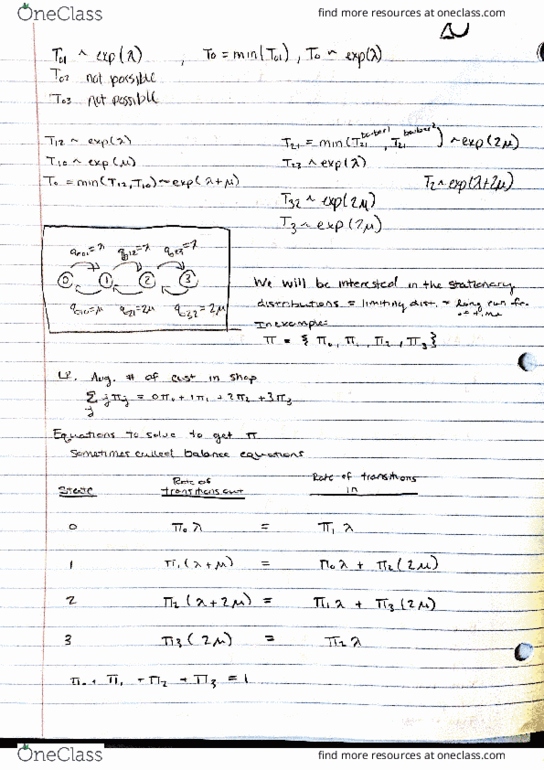 OneClass
find more resources at oneclass.com
T₀₁ ~ exp(λ) , T₀ = min(T₀₁) , T₀ ~ exp(λ)
T₀₂ not possible
T₀₃ not possible
T₁₂ ~ exp(λ)
T₁₀ ~ exp(μ)
T₀ = min(T₁₂, T₁₀) ~ exp(λ+μ)
T₂₁ = min(T₂₁^barber1, T₂₁^barber2) ~ exp(2μ)
T₂₃ ~ exp(λ)
T₂ ~ exp(λ+2μ)
T₃₂ ~ exp(2μ)
T₃ ~ exp(2μ)
q₀₁=λ q₁₂=λ q₂₃=λ
0 1 2 3
q₁₀=μ q₂₁=2μ q₃₂=2μ
We will be interested in the stationary
distributions = limiting dist. = long run
of time
In example:
π = { π₀, π₁, π₂, π₃ }
Avg. # of cust in shop
Σ jπj = 0π₀ + 1π₁ + 2π₂ + 3π₃
j
Equations to solve to get π
Sometimes called balance equations
State Rate of transitions out Rate of transitions in
0 π₀ λ = π₁ λ
1 π₁(λ+μ) = π₀λ + π₂(2μ)
2 π₂(λ+2μ) = π₁λ + π₃(2μ)
3 π₃(2μ) = π₂λ
π₀ + π₁ + π₂ + π₃ = 1
OneClass
find more resources at oneclass.com